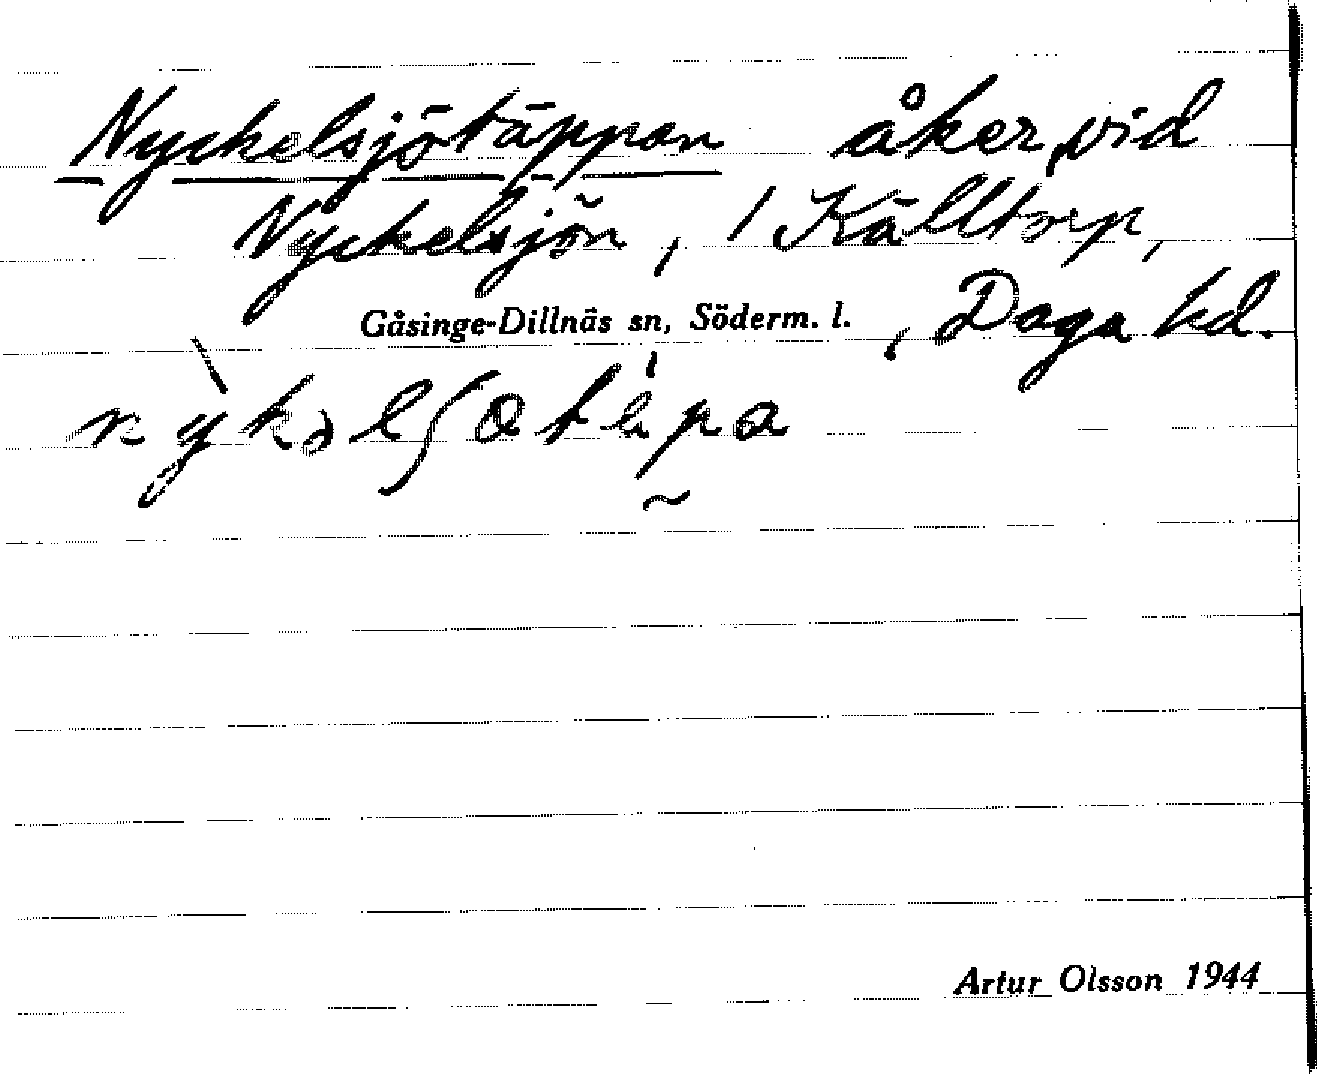 Nyckelsjötäppan åker vid
Nyckelsjön, 1 Källtorp,
Gåsinge-Dillnäs sn, Söderm. l., Daga hd.
Artur Olsson 1944